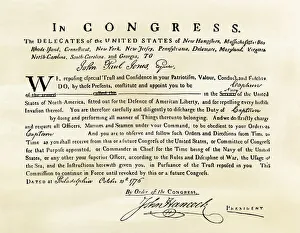 IN CONGRESS.
The DELEGATES of the UNITED STATES of New Hampshire, Massachusetts-Bay,
Rhode-Island, Connecticut, New-York, New-Jersey, Pennsylvania, Delaware, Maryland, Virginia,
North-Carolina, South-Carolina, and Georgia, TO
John Paul Jones Esquire,
WE, reposing especial Trust and Confidence in your Patriotism, Valour, Conduct, and Fidelity,
DO, by these Presents, constitute and appoint you to be Captain
of the armed in the Service of the United
States of North America, fitted out for the Defence of American Liberty, and for repelling every hostile
Invasion thereof. You are therefore carefully and diligently to discharge the Duty of Captain
by doing and performing all manner of Things thereunto belonging. And we do strictly charge
and require all Officers, Marines and Seamen under your Command, to be obedient to your Orders as
Captain And you are to observe and follow such Orders and Directions from Time to
Time as you shall receive from this or a future Congress of the United States, or Committee of Congress
for that Purpose appointed, or Commander in Chief for the Time being of the Navy of the United
States, or any other your superior Officer, according to the Rules and Discipline of War, the Usage of the
Sea, and the Instructions herewith given you, in Pursuance of the Trust reposed in you. This
Commission to continue in Force until revoked by this or a future Congress.
DATED at Philadelphia October 10th 1776
By Order of the CONGRESS,
John Hancock PRESIDENT.